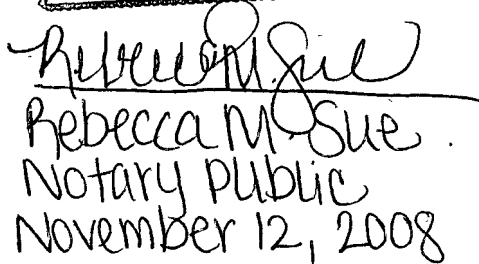 Rebecca M. Sue
Rebecca M. Sue
Notary Public
November 12, 2008